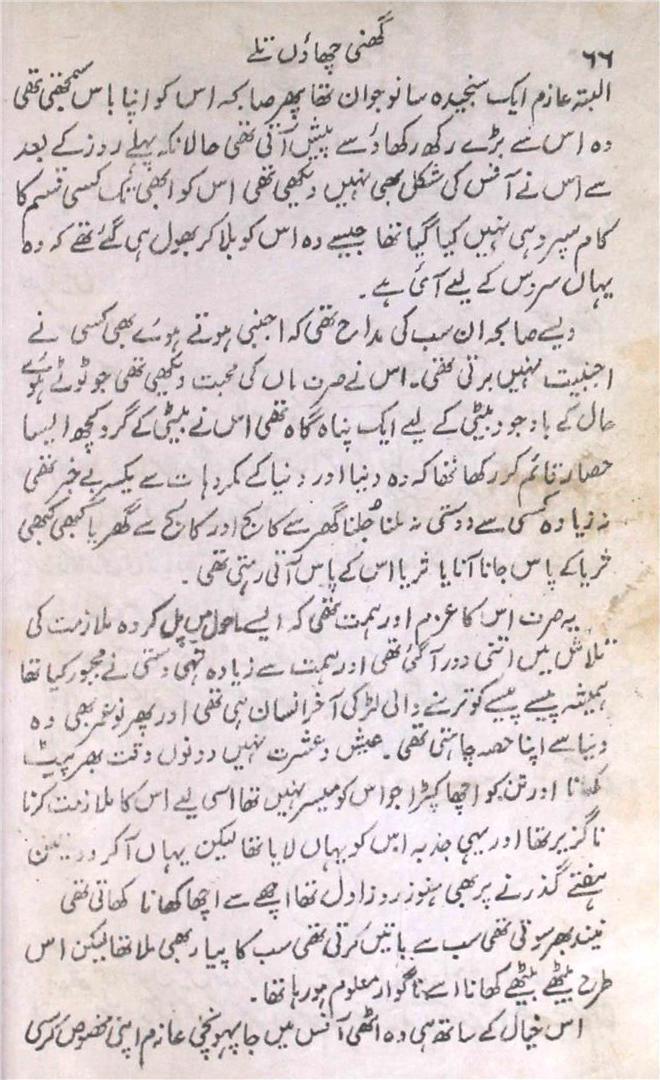 ۶۶
گھنی چھاؤں تلے
البتہ عازم ایک سنجیدہ سا نوجوان تھا پھر صابحہ اس کو اپنا باس سمجھتی تھی
وہ اس سے بڑے رکھ رکھاؤ سے پیش آتی تھی حالانکہ پہلے روز کے بعد
سے اس نے آفس کی شکل بھی نہیں دیکھی تھی اس کو ابھی تک کسی قسم کا
کام سپرد ہی نہیں کیا گیا تھا جیسے وہ اس کو بلا کر بھول ہی گئے تھے کہ وہ
یہاں سروس کے لیے آئی ہے۔
ویسے صابحہ ان سب کی مداح تھی کہ اجنبی ہوتے ہوئے بھی کسی نے
اجنبیت نہیں برتی تھی۔ اس نے صرف ماں کی محبت دیکھی تھی جو ٹوٹے ہوئے
حال کے باوجود بیٹی کے لیے ایک پناہ گاہ تھی اس نے بیٹی کے گرد کچھ ایسا
حصار قائم کر رکھا تھا کہ وہ دنیا اور دنیا کے مکروہات سے یکسر بے خبر تھی
نہ زیادہ کسی سے دوستی نہ ملنا جُلنا گھر سے کالج اور کالج سے گھر یا کبھی کبھی
ثریا کے پاس جانا آنا یا ثریا اس کے پاس آتی رہتی تھی۔
یہ صرف اس کا عزم اور ہمت تھی کہ ایسے ماحول میں پل کر وہ ملازمت کی
تلاش میں اتنی دور آ گئی تھی اور ہمت سے زیادہ تہی دستی نے مجبور کیا تھا
ہمیشہ پیسے پیسے کو ترسنے والی لڑکی آخر انسان ہی تھی اور پھر نو عمر بھی وہ
دنیا سے اپنا حصہ چاہتی تھی۔ عیش و عشرت نہیں دونوں وقت بھر پیٹ
کھانا اور تن کو اچھا کپڑا جو اس کو میسر نہیں تھا اسی لیے اس کا ملازمت کرنا
ناگزیر تھا اور یہی جذبہ اس کو یہاں لایا تھا لیکن یہاں آ کر دو تین
ہفتے گذرنے پر بھی ہنوز روز اول تھا اچھے سے اچھا کھانا کھاتی تھی
نیند بھر سوتی تھی سب سے باتیں کرتی تھی سب کا پیار بھی ملا تھا لیکن اس
طرح بیٹھے بیٹھے کھانا اسے ناگوار معلوم ہو رہا تھا۔
اس خیال کے ساتھ ہی وہ اٹھی آفس میں جا پہونچی عازم اپنی مخصوص کرسی